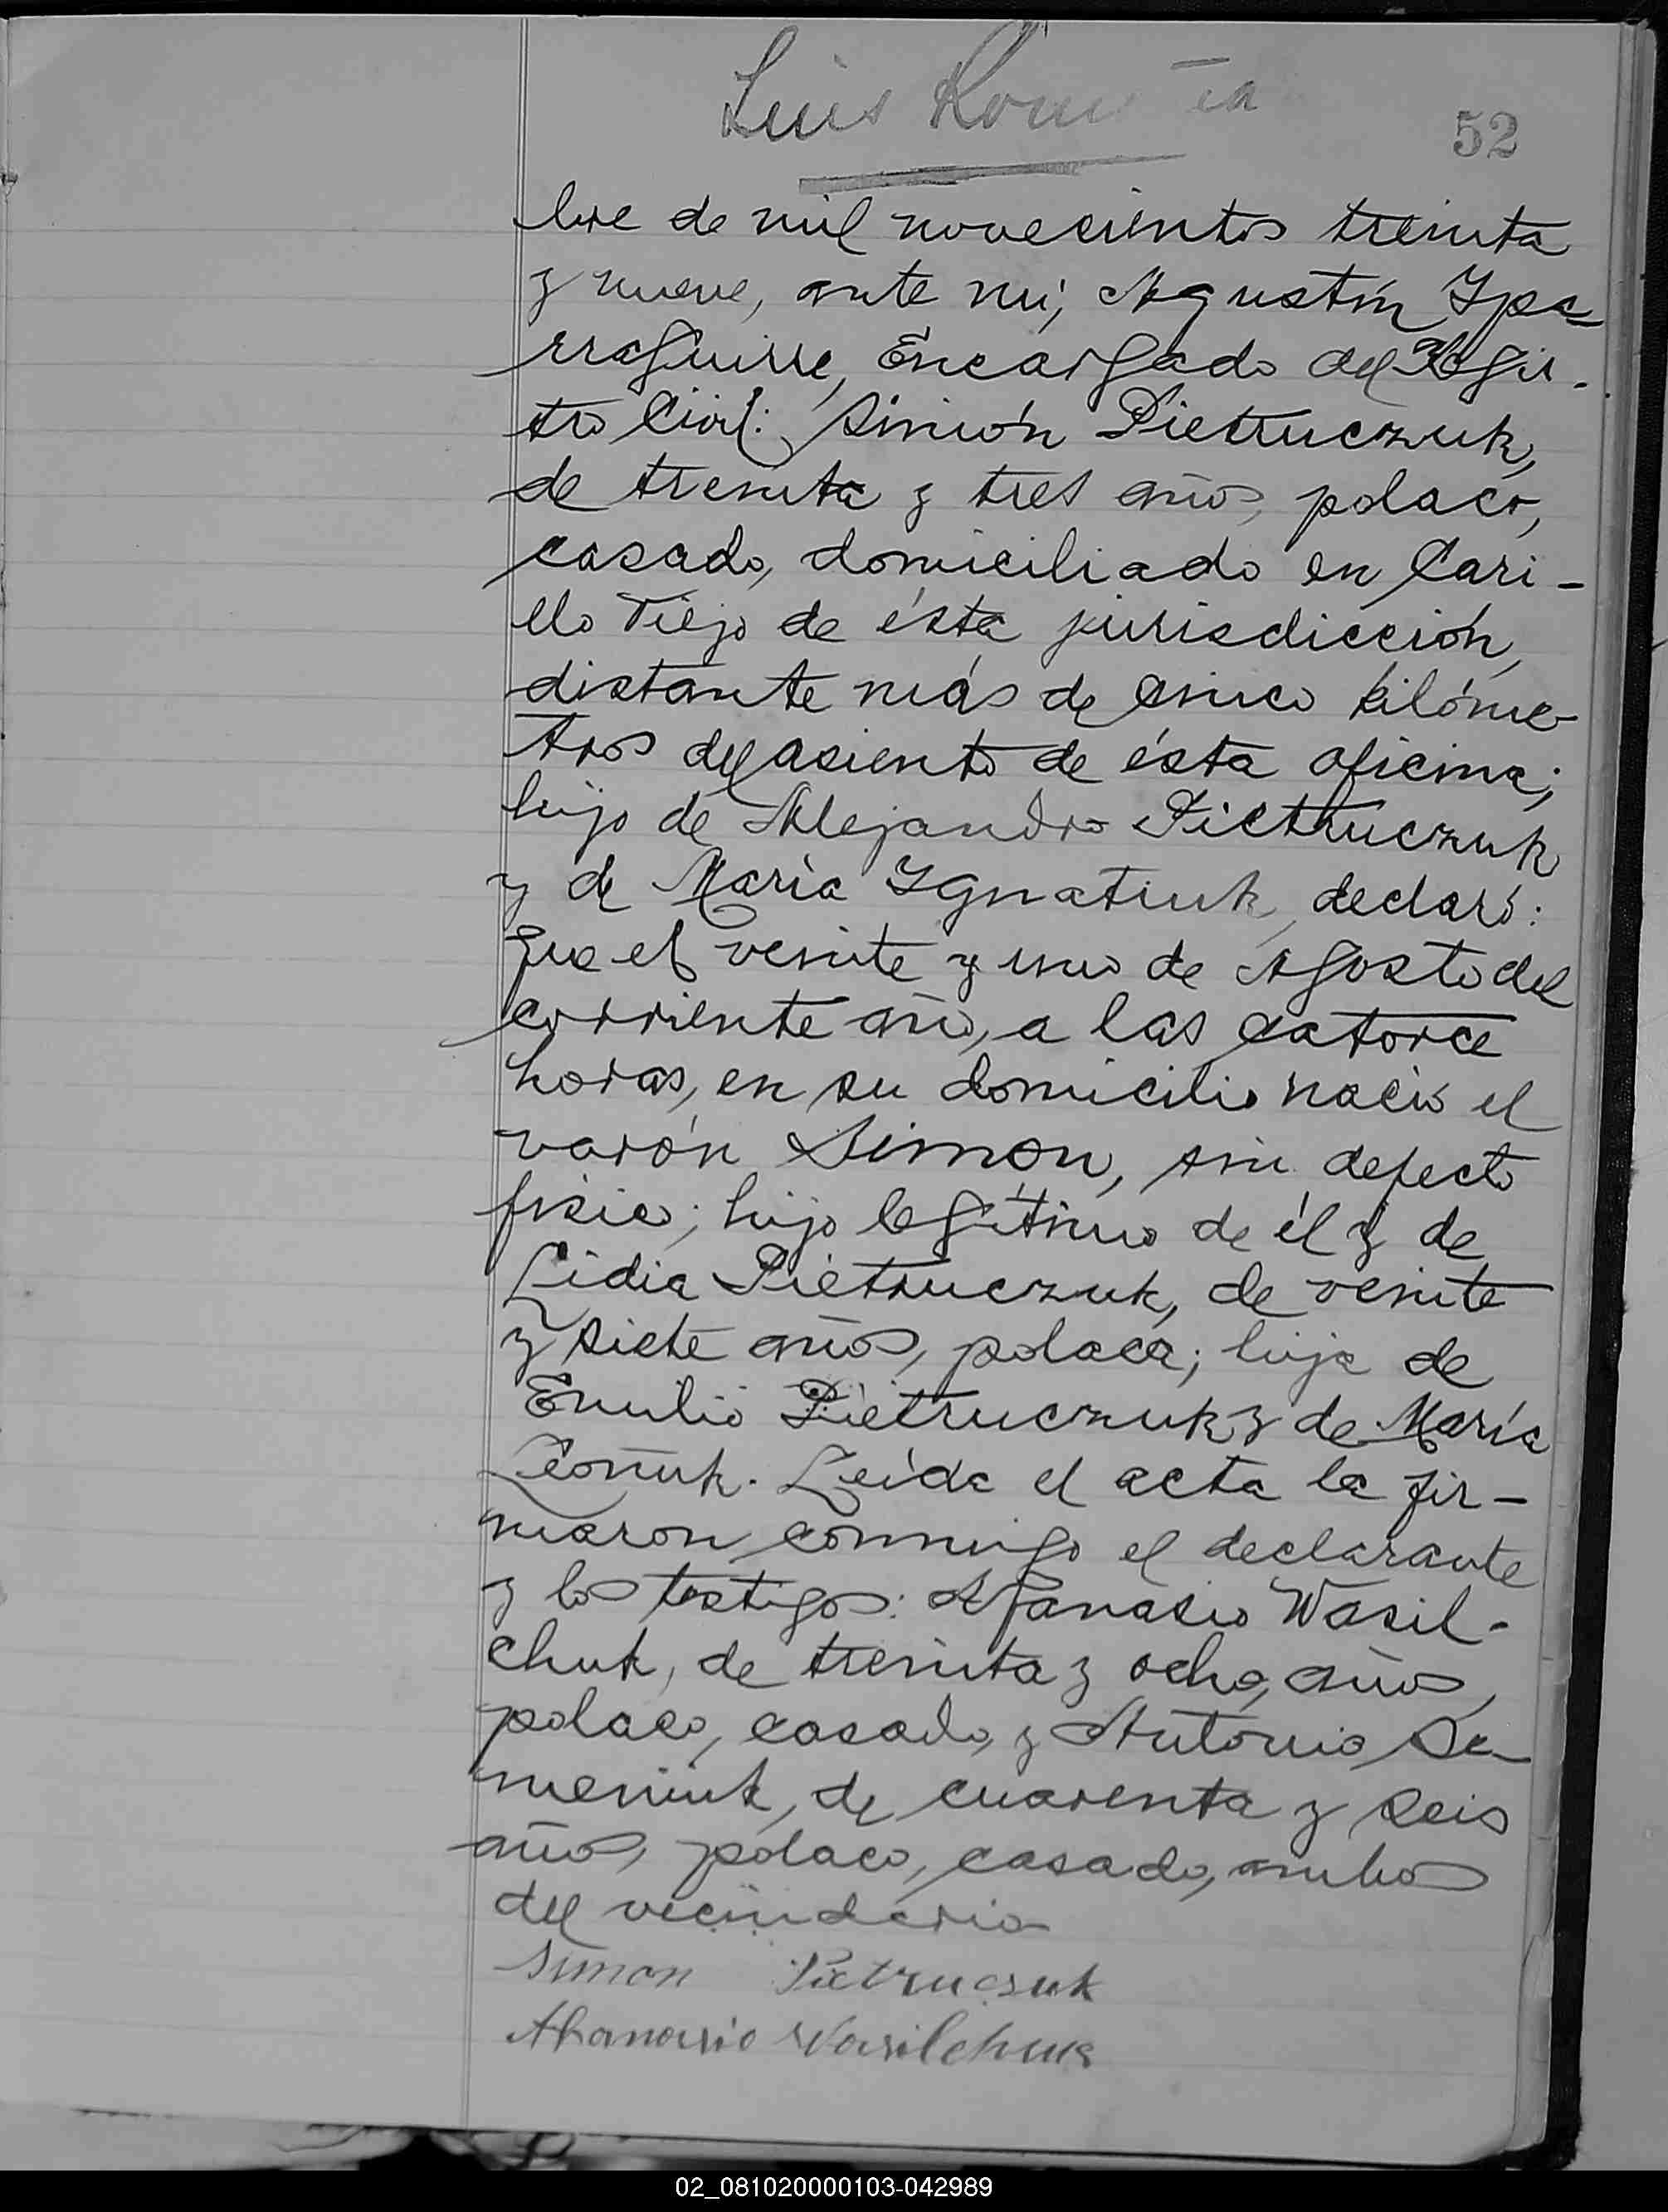 Luis
52
bre de mil novecientos treinta
y nueve, ante mí, Agustín Ypa-
rraguirre, Encargado del Regis-
tro Civil: Simón Pietruczuk,
de treinta y tres años, polaco,
casado, domiciliado en Cari-
llo Viejo de ésta jurisdicción,
distante más de cinco kilóme-
tros del asiento de ésta oficina;
hijo de Alejandro Pietruczuk
y de María Ygnatiuk, declaró:
Que el veinte y uno de Agosto del
corriente año, a las catorce
horas, en su domicilio nació el
varón Simón, sin defecto
físico; hijo legítimo de él y de
Lidia Pietruczuk, de veinte
y siete años, polaca; hija de
Emilio Pietruczuk y de María
Leida el acta la fir-
maron conmigo el declarante
y los testigos: Afanasio Wasil-
chuk, de treinta y ocho, años,
polaco, casado, y Antonio Se-
meniuk, de cuarenta y seis
años, polaco, casado, ambos
del vecindario
Simon Pietruczuk
Afanasio Wasilchuk
02_081020000103-042989